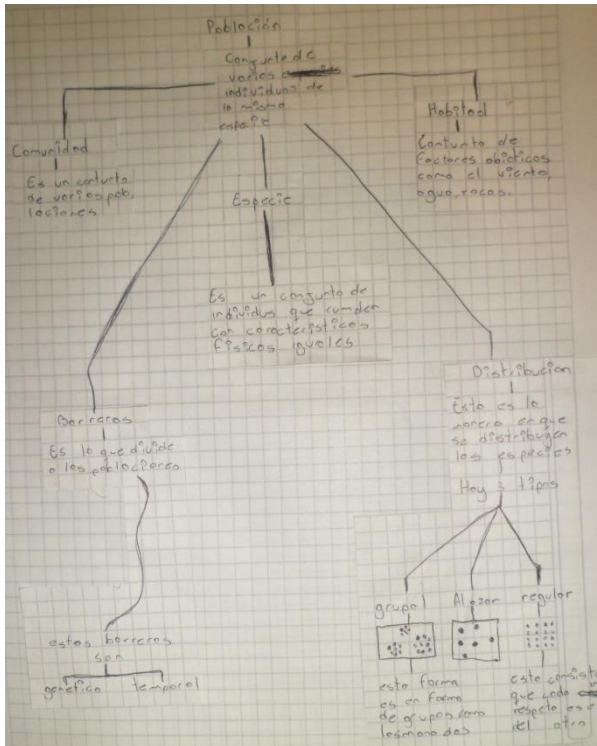 Población
Conjunto de
varios
individuos de
la misma
especie
Comunidad
Es un conjunto
de varios pob,
laciones
Habitad
Contunto de
factores abióticos
como el viento,
agua, rocas.
Especie
Es un conjunto de
individus que cumden
con característicos
físicos iguales
Barreras
Es lo que divide
a las poblaciones
estas barreras
son
genético temporal
Distribucion
Esta es la
manera en que
se distribuyen
las especies
Hay 3 tipos
grupal Al azar regular
esta forma
es en forma
de grupos como
las manadas
este consiste
que cada
respeta es
del otro